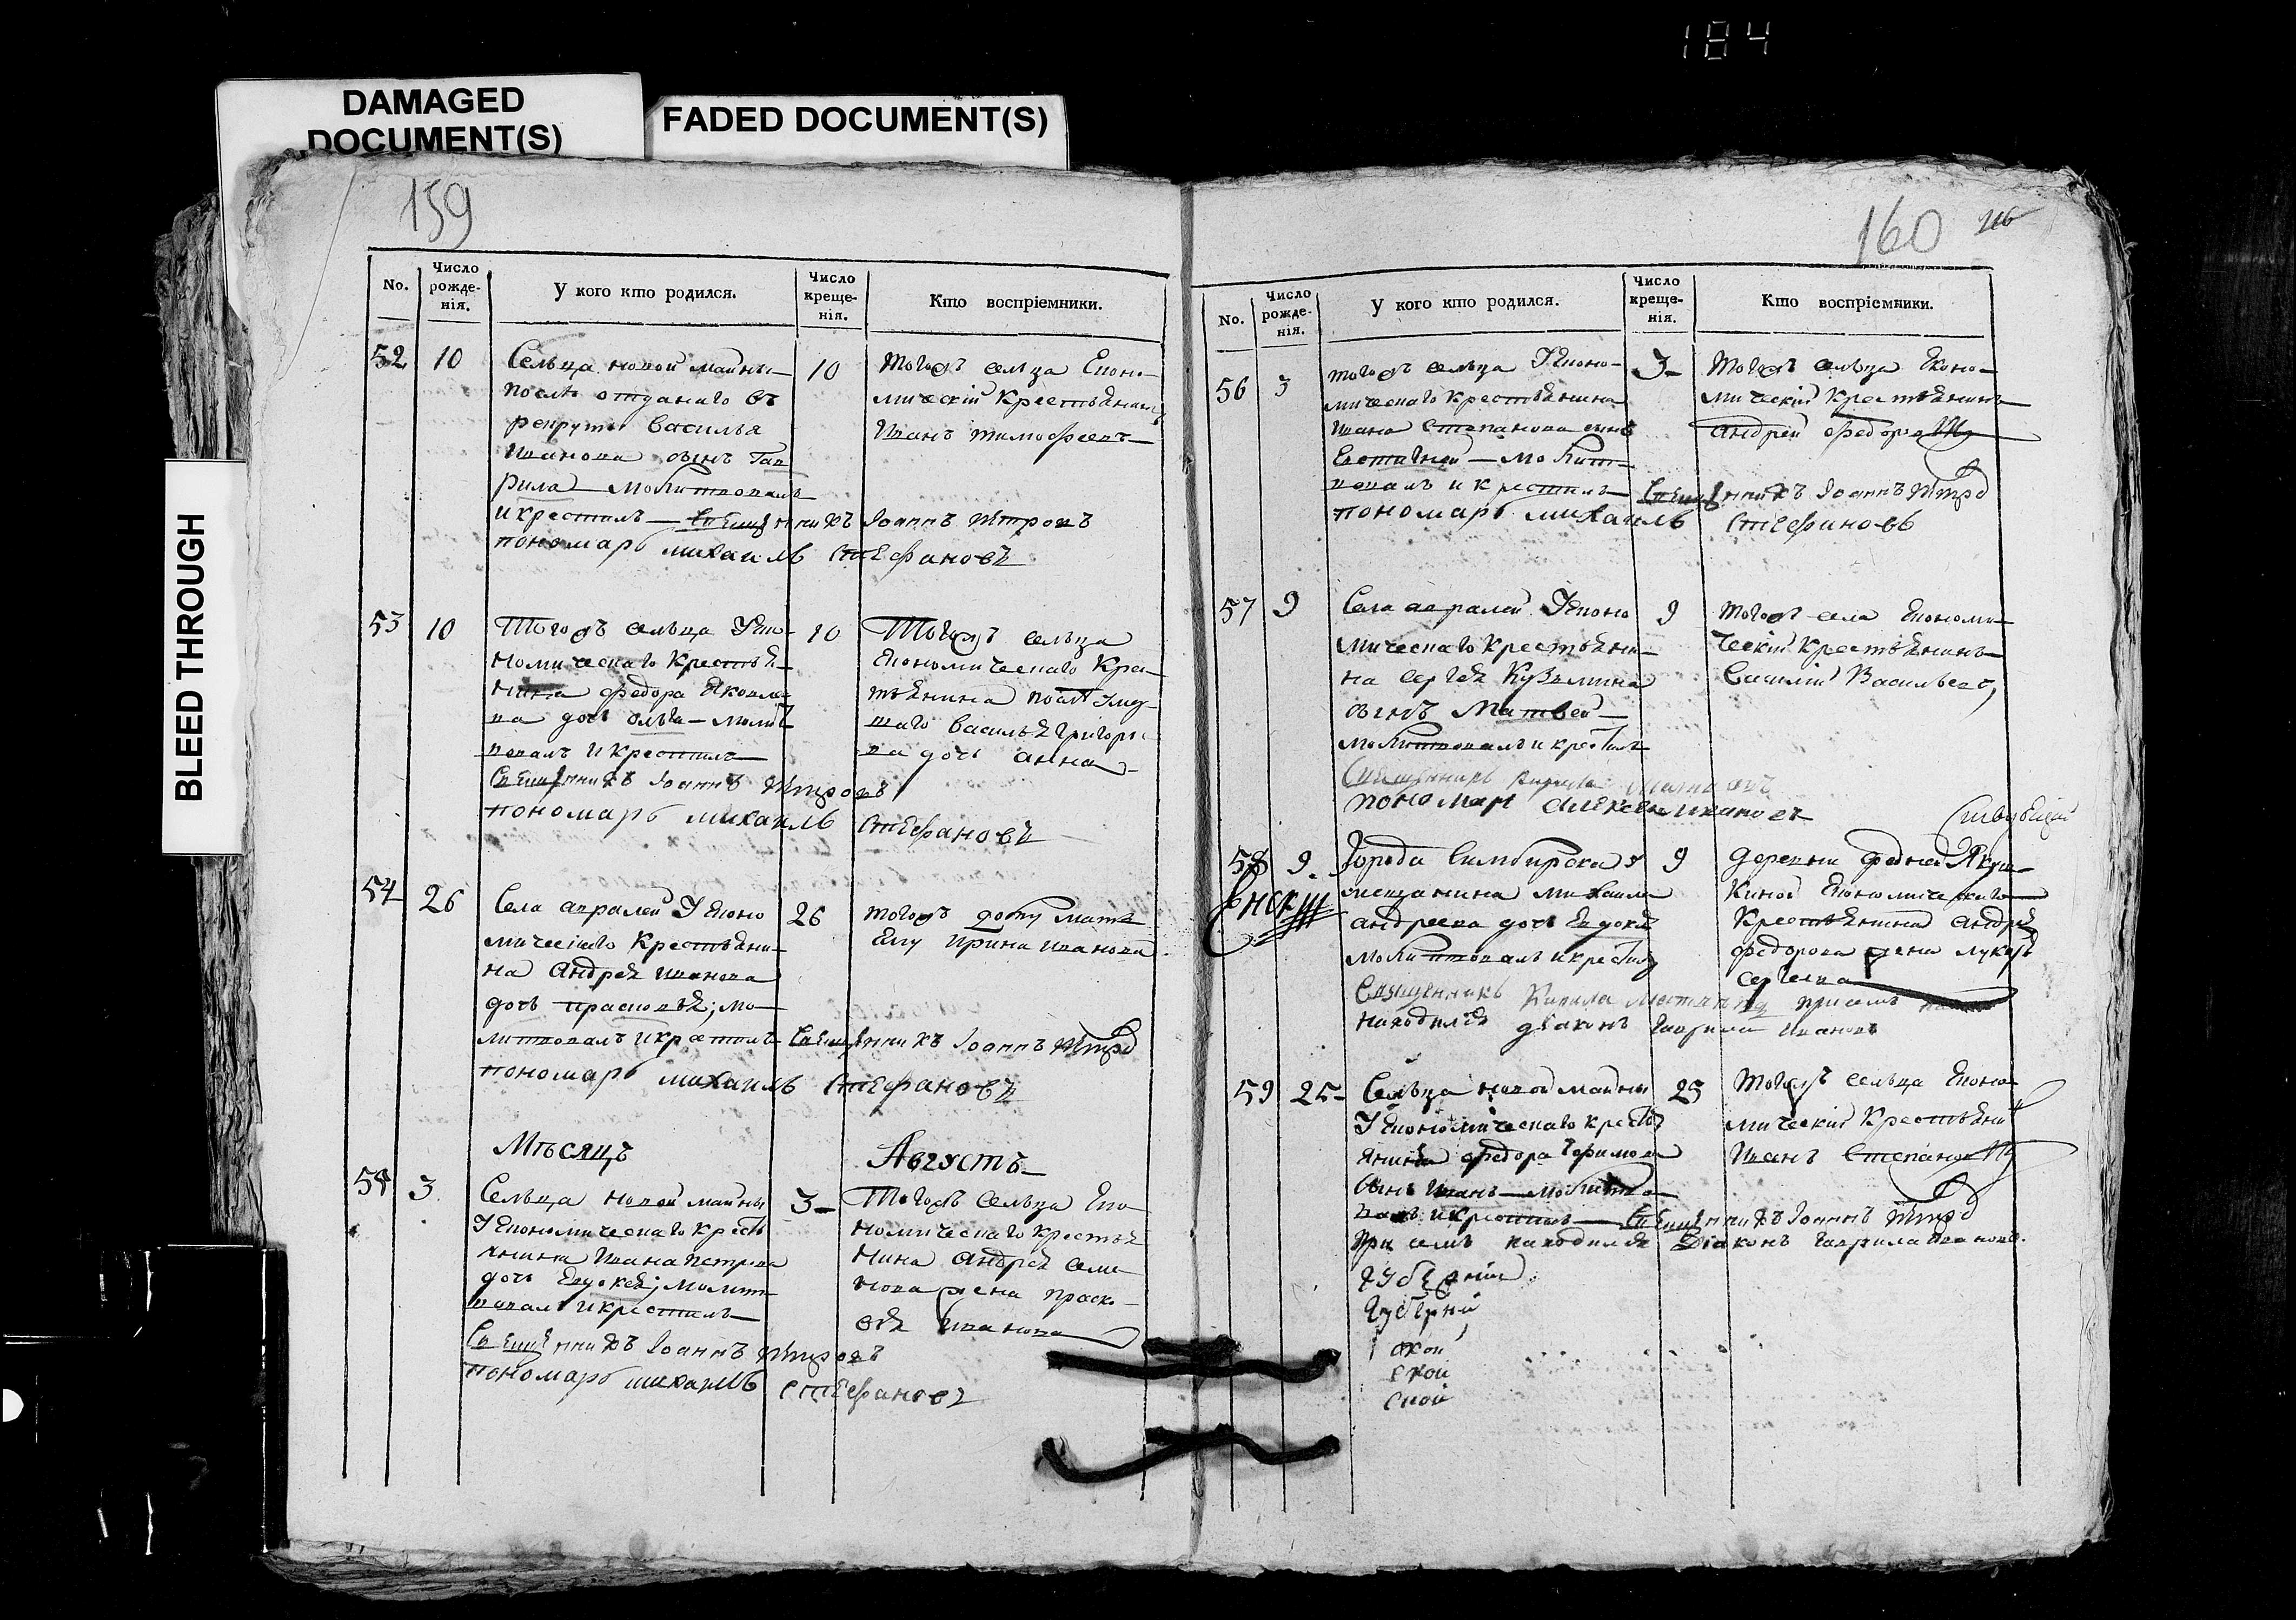 184
DAMAGED
DOCUMENT(S)
FADED DOCUMENT(S)
BLEED THROUGH
159
No.
Число рожде-нія.
У кого кто родился.
Число креще-нія.
Кто воспріемники.
52
10
Сельца новой маины
после отданаго въ
рекруты василья
Иванова сынъ Гав
рила молитвовалъ
и крестилъ Священникъ Іоаннъ Петровъ
пономарь михаилъ Стефановъ
10
тогожъ сельца Еконо
мическій крестьянинъ
Иванъ тимофеевъ
53
10
Тогожъ сельца Уеко
номическаго крестья
нина федора Яковле
ва дочь олга молит
вовалъ и крестилъ
Священникъ Іоаннъ Петровъ
пономарь михаилъ Стефановъ
10
Тогожъ сельца
Економическаго Крес
тьянина
василья григорье
ва дочь анна
54
26
Села апралей Уеконо
мическаго крестьяни
на Андрея Иванова
дочь прасковья; мо
литвовалъ и крестилъ Священникъ Іоаннъ Петро
пономарь михаилъ Стефановъ
26
тогожъ
ему ирина иванова
Мѣсяцъ Августъ
3
Сельца новой маины
Уекономическаго кресть
янина Ивана петрова
дочь Евдокея; молит
вовалъ и крестилъ
Священникъ Іоаннъ Петровъ
пономарь михаилъ Стефановъ
3
Тогожъ Сельца Еко
номическаго крестья
нина Андрея семе
нова жена праско
вья Иванова
160
No.
Число рожде-нія.
У кого кто родился.
Число креще-нія.
Кто воспріемники.
56
3
тогожъ сельца Уеконо
мическаго крестьянина
Ивана Степанова сынъ
Евстигней молит
вовалъ и крестилъ Священникъ Іоаннъ Петро
пономарь михаилъ Стефановъ
3
Тогожъ сельца Еконо
мическій крестьянинъ
андрей федоровъ
57
9
Села апралей Уеконо
мическаго крестьяни
на сергея Кузьмина
сынъ Матвей
молитвовалъ и крестилъ
Священникъ
пономарь алексей ивановъ
9
тогожъ села Економи
ческій крестьянинъ
Василій Васильевъ
58
9
Города Симбирска у
мещанина михаила
андреева дочь Евдокея
молитвовалъ и крестилъ
Священникъ Кирила при семъ
находился діаконъ гаврила ивановъ
9
деревни
Економическаго
крестьянина андрея
федорова жена лукерья
сергеева
59
25
Сельца новой маины
Уекономическаго кресть
янина федора
сынъ Иванъ молитво
валъ и крестилъ Священникъ Іоаннъ Петро
При семъ находился Діаконъ гаврила ивановъ
губерніи
губерній
ской
ской
ской
25
Тогожъ сельца Еконо
мическій крестьянинъ
Иванъ Степановъ